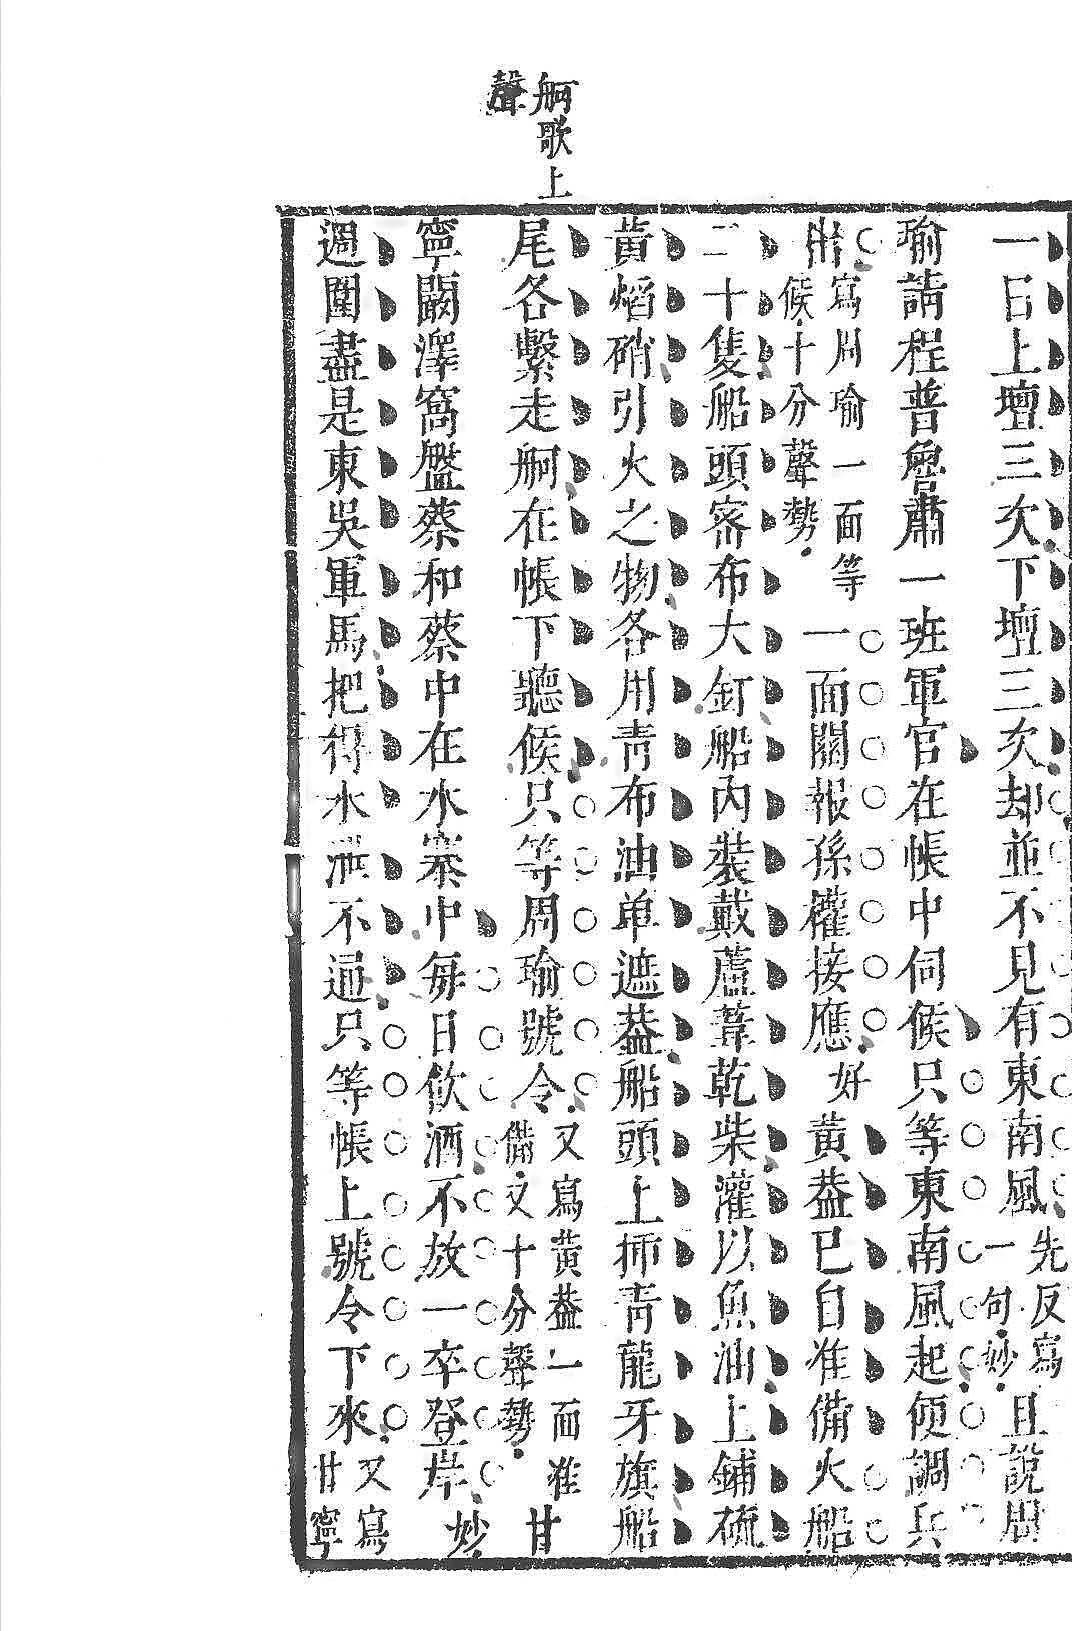 舸歌上
聲
一日上壇三次下壇三次却並不見有東南風先反寫一句妙且說周
瑜請程普魯肅一班軍官在帳中伺候只等東南風起便調兵
出寫周瑜一面等候十分聲勢一面關報孫權接應好黃蓋已自准備火船
二十隻船頭密布大釘船內裝載蘆葦乾柴灌以魚油上鋪硫
黃焰硝引火之物各用青布油单遮蓋船頭上插青龍牙旗船
尾各繫走舸在帳下聽候只等周瑜號令又寫黃蓋一面准備又十分聲勢甘
寧闞澤窩盤蔡和蔡中在水寨中每日飲酒不放一卒登岸妙
週圍盡是東吳軍馬把得水泄不通只等帳上號令下來又寫甘寧